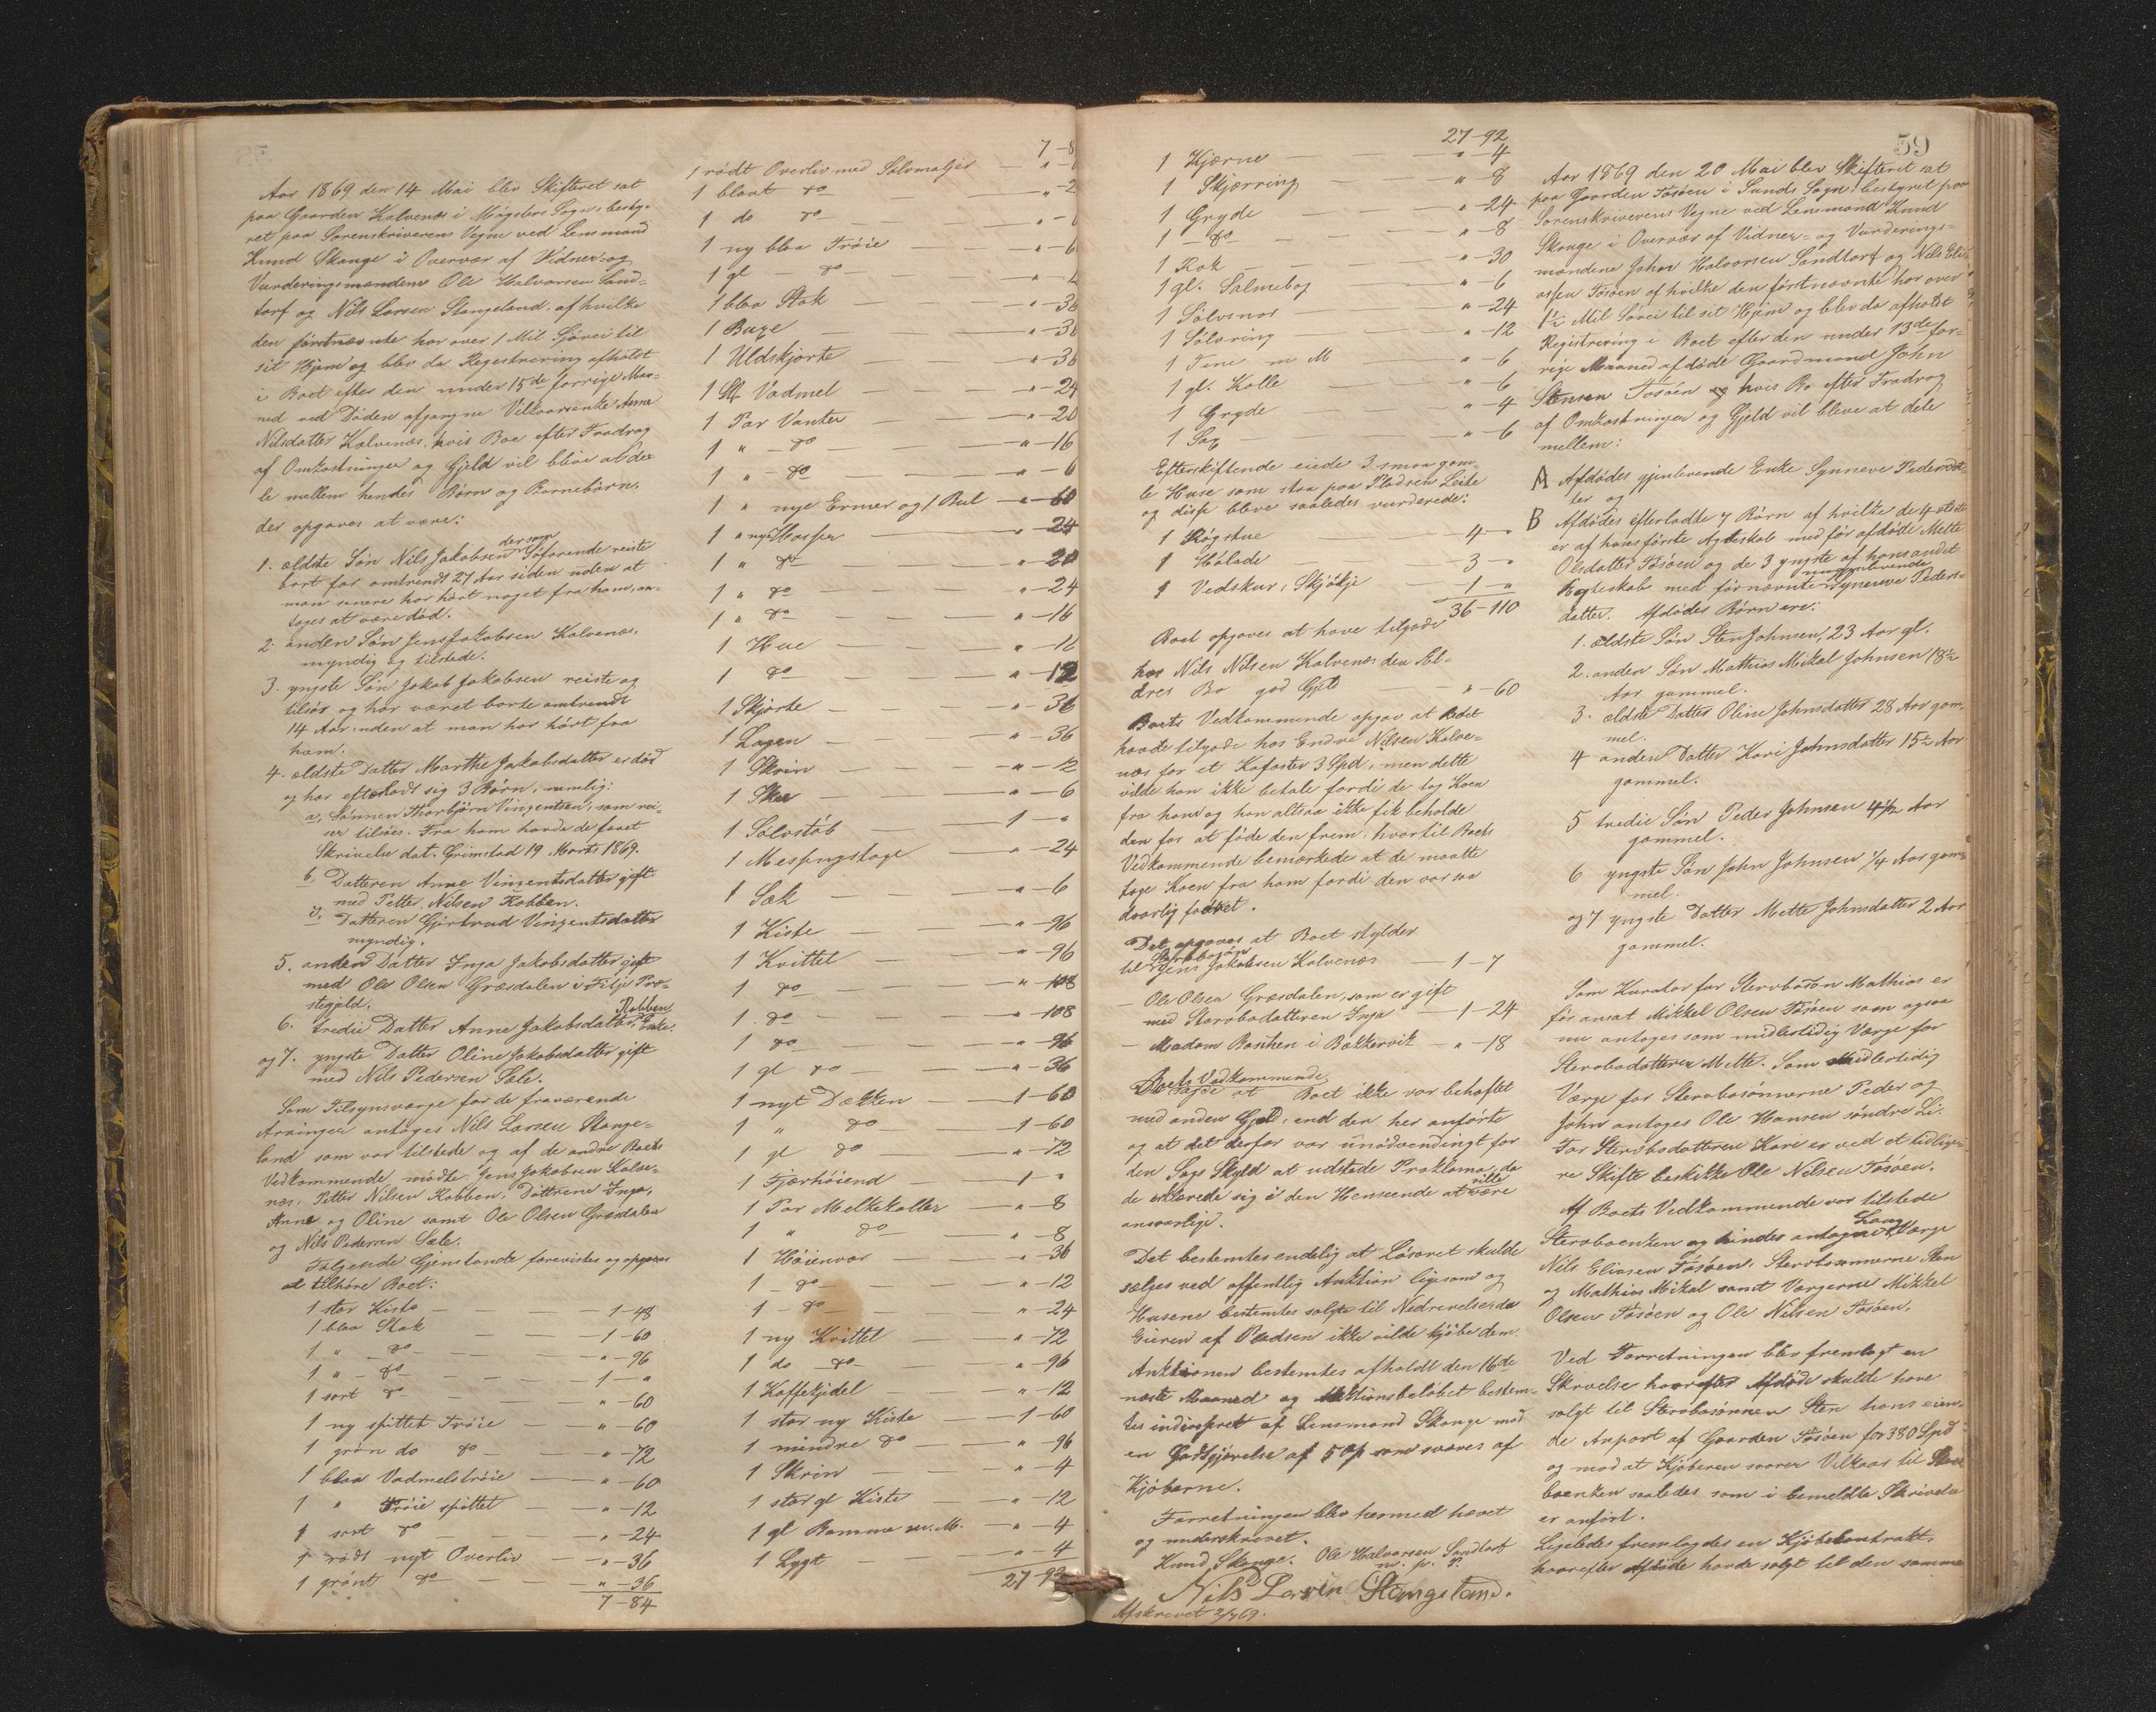 Aar 1869 den 14 Mai blev Skifteret sat
paa Gaarden Kalvenæs i Møgsters Sogn, besty-
ret paa Sorenskriverens Vegne ved Lensmand
Knud Skange i Overvær af Vidner- og
Vurderingsmændene Ole Halvorsen Sand-
torf og Nils Larsen Stangeland, af hvilke
den førstnævnte har over 1 Mil Sjøvei til
sit Hjem og blev da Registrering afholdt
i Boet efter den under 15de forrige Maa-
ned ved Døden afgangne Vilkaarsenke Anna
Nilsdatter Kalvenæs, hvis Boe efter Fradrag
af Omkostninger og Gjeld vil blive at de-
le mellem hendes Børn og Børnebørn,
der opgaves at være:
1. ældste Søn Nils Jakobsen der som Søfarende reiste
bort for omtrendt 27 Aar siden uden at
man senere har hørt noget fra ham, an-
tages at være død.
2. anden Søn Jens Jakobsen Kalvenæs,
myndig og tilstede.
3. yngste Søn Jakob Jakobsen reiste og
tilsøs og har været borte omtrendt
14 Aar, uden at man har hørt fra
ham.
4. ældste Datter Marthe Jakobsdatter er død
og har efterladt sig 3 Børn, nemlig:
a, Sønnen Thorbjørn Vinzentsen, som rei-
ser tilsøes. Fra ham havde de faaet
Skrivelse dat. Grimstad 19 Marts 1869.
b, Datteren Anne Vinzentsdatter gift
med Petter Nilsen Kobben.
c, Datteren Gjertrud Vinzentsdatter
myndig.
5. anden Datter Inga Jakobsdatter gift
med Ole Olsen Græsdalen i Fitje Præ-
stegjeld.
6. tredie Datter Anne Jakobsdatter Kobben, Enke.
og 7. yngste Datter Oline Jakobsdatter gift
med Nils Pedersen Sæle.
Som Tilsynsværge for de fraværende
Arvinger antoges Nils Larsen Stange-
land som var tilstede og af de andre Boets
Vedkommende mødte Jens Jakobsen Kalve-
næs, Petter Nilsen Kobben, Døttrene Inga,
Anne og Oline samt Ole Olsen Græsdalen
og Nils Pedersen Sæle.
Følgende Gjenstande forevistes og opgaves
at tilhøre Boet:
1 stor Kiste — 1-48
1 blaa Stak — 1-60
1 " — do — " -96
1 " — do — 1- "
1 sort do — " -60
1 ny spittet Trøie — " -60
1 grøn do do — " -72
1 blaa Vadmelstrøie — " -60
1 " Trøie spittet — " -12
1 sort do — " -24
1 rødt nyt Overliv — " -36
1 grønt do — " -36
7-84
7-8
1 rødt Overliv med Sølvmaljer — "
1 blaat do — " -2
1 do do — "
1 ny blaa Trøie — " -6
1 gl — do — "
1 blaa Stak — " -36
1 Buxe — " -36
1 Uldskjorte — " -36
1 St Vadmel — " -24
1 Par Vanter — " -20
1 " — do — " -16
1 " — do — " -6
1 " nye Ermer og 1 Bul — " -60
1 " nye Hosser — " -24
1 " do — " -20
1 " do — " -24
1 " do — " -16
1 Hue — " -12
1 do — " -12
1 Skjorte — " -36
1 Lagen — " -36
1 Skrin — " -12
1 Skee — " -6
1 Sølvstøb — 1- "
1 Messingstage — " -24
1 Sæk — " -6
1 Kiste — " -96
1 Kvittel — " -96
1 do — " -108
1 do — " -108
1 do — " -96
1 gl do — " -36
1 nyt Dækken — 1-60
1 " do — 1-60
1 gl do — " -72
1 Fjærhøiend — 1- "
1 Par Melkekoller — " -8
1 " do — " -8
1 Høienvar — " -36
1 — do — " -12
1 — do — " -24
1 ny Kvittel — " -72
1 do — do — " -96
1 Kaffekjedel — " -12
1 stor ny Kiste — 1-60
1 mindre do — " -96
1 Skrin — " -4
1 stor gl Kiste — " -12
1 gl Bomme m. M. — " -4
1 Lygt — " -4
27-92
27-92
1 Kjærne — " -4
1 Skjærring — " -8
1 Gryde — " -24
1 — do — " -8
1 Rok — " -30
1 gl. Salmebog — " -6
1 Sølvsnor — " -24
1 Sølvring — " -12
1 Tine m M — " -6
1 gl. Kolle — " -6
1 Gryde — " -4
1 Sax — " -6
Efterskiftende eiede 3 smaa gam-
le Huse som staa paa Pladsen Leite
og disse bleve saaledes vurderede:
1 Røgstue — 4- "
1 Hølade — 3- "
1 Vedskur, Skjøkje — 1- "
36-110
Boet opgaves at have tilgode
hos Nils Nilsen Kalvenæs den Æl-
dres Bo god Gjeld — " -60
Boets Vedkommende opgav at Boet
havde tilgode hos Endre Nilsen Kalve-
næs for et Kofoster 3 Spd, men dette
vilde han ikke betale fordi de tog Koen
fra ham og han altsaa ikke fik beholde
den for at føde den frem, hvortil Boets
Vedkommende bemærkede at de maatte
tage Koen fra ham fordi den var saa
daarlig foeret.
Det opgaves at Boet skylder
til Stervbosøn Jens Jakobsen Kalvenæs — 1-7
— Ole Olsen Græsdalen, som er gift
med Stervbodatteren Inga — 1-24
— Madam Baschen i Bækkervik — " -18
Boets Vedkommende
at Boet ikke var behæftet
med anden Gjeld, end den her anførte
og at det derfor var unødvendingt for
den Sags Skyld at udstede Proklama, da
de erklærede sig i den Henseende at ville være
ansvarlige.
Det bestemtes endelig at Løsøret skulde
sælges ved offentlig Auktion ligesom og
Husene bestemtes solgte til Nedrivelse, da
Eieren af Pladsen ikke vilde kjøbe dem.
Auktionen bestemtes afholdt den 16de
næste Maaned og Auktionsbeløbet bestem-
tes inddrevet af Lensmand Skange mod
en Godtgjørelse af 5 op som svares af
Kjøberne.
Forretningen blev hermed hævet
og underskrevet.
Knud Skange. Ole Halvorsen Sandtorf
m. p. P.
Nils Larsen Stangeland.
Afskrevet 2/7 69.
59
Aar 1869 den 20 Mai blev Skifteret sat
paa Gaarden Tøsøen i Sunds Sogn, bestyret paa
Sorenskriverens Vegne ved Lensmand Knud
Skange i Overvær af Vidner- og Vurderings-
mændene Johan Halvorsen Sandtorf og Nils Eli-
assen Tøsøen af hvilke den førstnævnte har over
1½ Mil Søvei til sit Hjem og blev da afholdt
Registrering i Boet efter den under 13de for-
rige Maaned afdøde Gaardmand John
Stensen Tøsøen og hvis Bo efter Fradrag
af Omkostninger og Gjeld vil blive at dele
mellem:
A Afdødes gjenlevende Enke Synneve Pedersdat-
ter og
B Afdødes efterladte 7 Børn af hvilke de 4 ældste
er af hans første Ægteskab med før afdøde Mette
Olsdatter Tøsøen og de 3 yngste af hans andet
Ægteskab med førnævnte nugjenlevende Synneve Peders-
datter. Afdødes Børn ere:
1. ældste Søn Sten Johnsen, 23 Aar gl.
2. anden Søn Mathias Mikal Johnsen 18½
Aar gammel.
3. ældste Datter Oline Johnsdatter 28 Aar gam-
mel.
4 anden Datter Kari Johnsdatter 15½ Aar
gammel.
5 tredie Søn Peder Johnsen 4½ Aar
gammel.
6 yngste Søn John Johnsen ¼ Aar gam-
mel.
og 7 yngste Datter Mette Johnsdatter 2 Aar
gammel.
Som Kurator for Stervbosøn Mathias er
før ansat Mikkel Olsen Tøsøen som ogsaa
nu antoges som midlertidig Værge for
Stervbodatteren Mette. Som midlertidig
Værge for Stervbosønnerne Peder og
John antoges Ole Hansen søndre Li.
For Stervbodatteren Kari er ved et tidlige-
re Skifte beskikket Ole Nilsen Tøsøen.
Af Boets Vedkommende var tilstede
Stervboenken og hendes antagne Laug Værge
Nils Eliasen Tøsøen, Stervbosønnerne Sten
og Mathias Mikal samt Værgerne Mikkel
Olsen Tøsøen og Ole Nilsen Tøsøen.
Ved Forretningen blev fremlagt en
Skrivelse hvorefter Afdøde skulde have
solgt til Stervbosønnen Sten hans eien-
de Anpart af Gaarden Tøsøen for 380 Spd
og mod at Kjøberen svarer Vilkaar til Sterv
boenken saaledes som i bemeldte Skrivelse
er anført.
Ligeledes fremlagdes en Kjøbekontrakt,
hvorefter Afdøde havde solgt til den samme